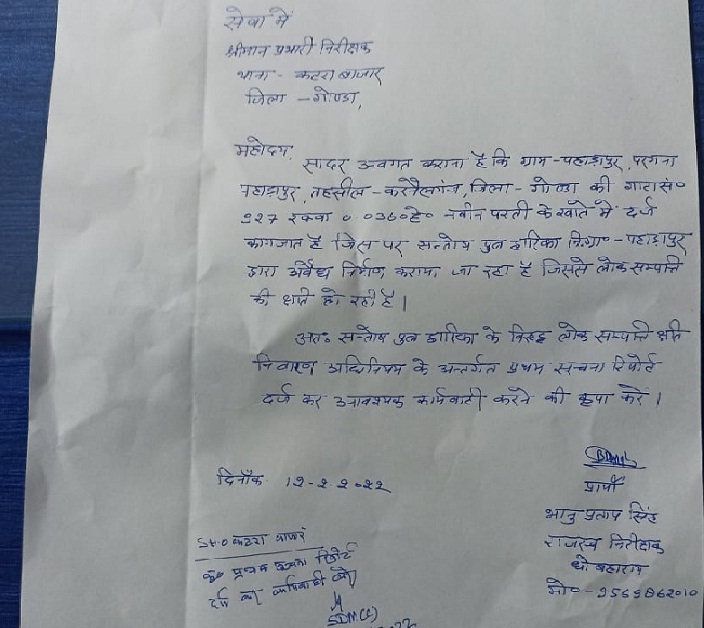 सेवा में
श्रीमान प्रभारी निरीक्षक
थाना - कटरा बाजार
जिला - गोण्डा,
महोदय,
सादर अवगत कराना है कि ग्राम - पहाड़ापुर, परगना
पहाड़ापुर, तहसील - करनैलगंज, जिला - गोण्डा की गाटा सं०
927 रकवा 0.036०हे० नवीन परती के खाते में दर्ज
कागजात है जिस पर सन्तोष पुत्र द्वारिका नि०ग्रा० - पहाड़ापुर
द्वारा अवैध निर्माण कराया जा रहा है जिससे लोक सम्पत्ति
की क्षति हो रही है।
अतः सन्तोष पुत्र द्वारिका के विरुद्ध लोक सम्पत्ति क्षति
निवारण अधिनियम के अन्तर्गत प्रथम सूचना रिपोर्ट
दर्ज कर आवश्यक कार्यवाही करने की कृपा करें।
दिनाँक 12-2 2022
प्रार्थी
भानु प्रताप सिंह
राजस्व निरीक्षक
मो० - 9569862010
S.O कटरा बाजार
प्रथम सूचना रिपोर्ट
दर्ज कर कार्यवाही करें
SDM(C)